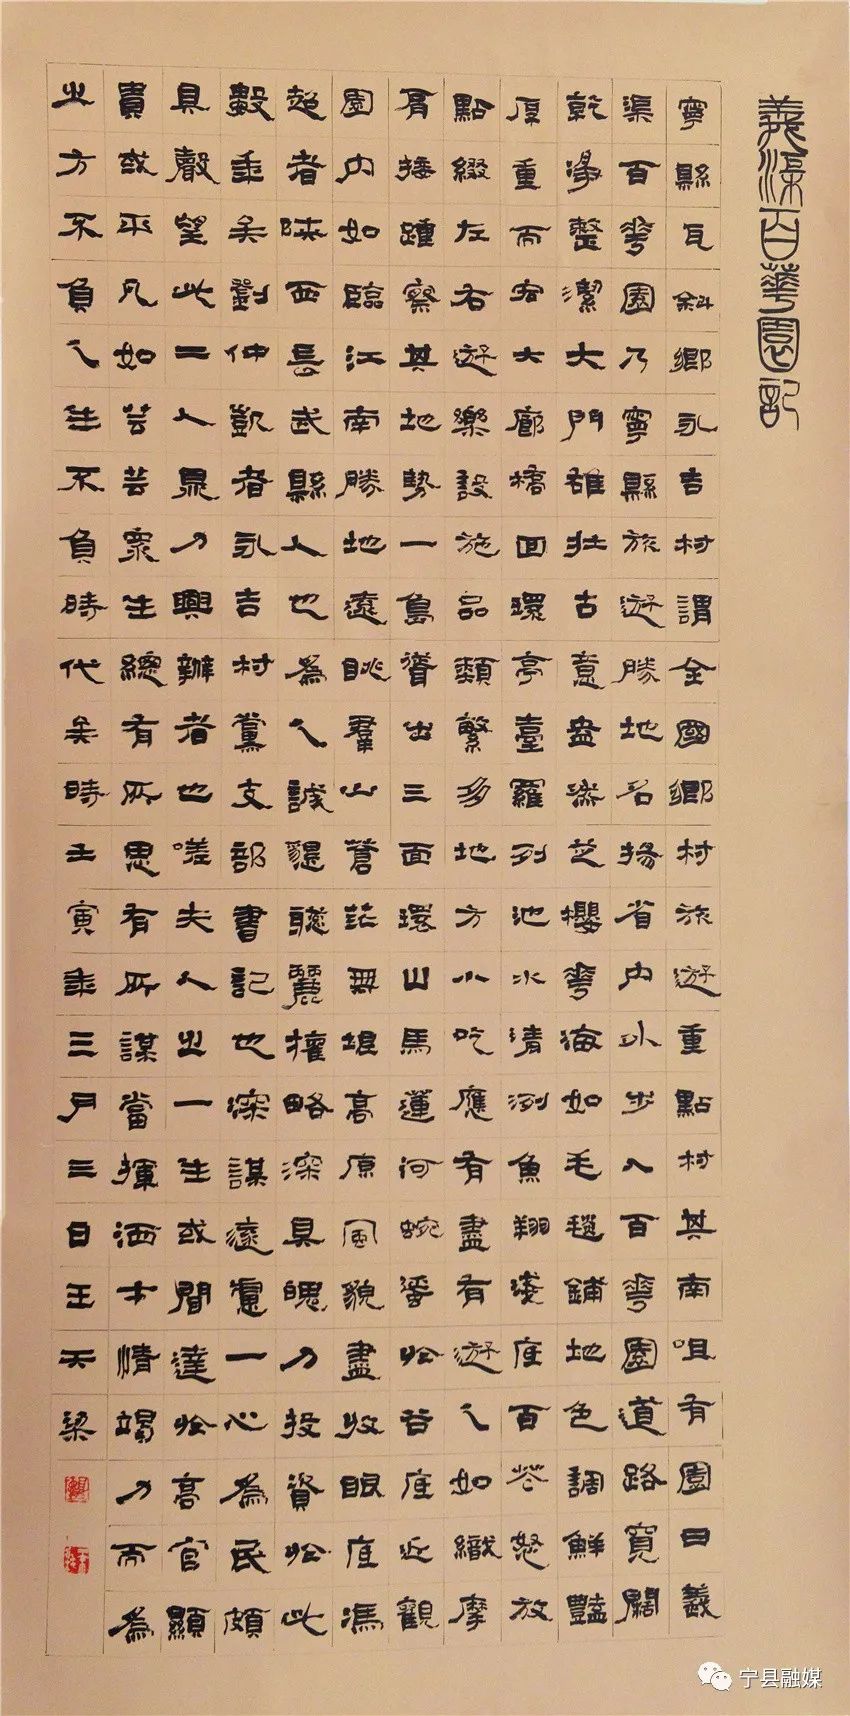 義渠百華園記
寧縣瓦斜鄉永吉村謂全國鄉村旅遊重點村其南咀有園曰義
渠百花園乃寧縣旅遊勝地名揚省內外步入百花園道路寬闊
乾淨整潔大門雄壯古意盎然芝櫻花海如毛毯鋪地色調鮮豔
厚重而宏大廊橋回環亭臺羅列池水清洌魚翔淺底百花怒放
點綴左右遊樂設施品類繁多地方小吃應有盡有遊人如織摩
肩接踵察其地勢一島聳出三面環山馬蓮河蜿蜒於谷底近觀
園內如臨江南勝地遠眺羣山蒼茫無垠高原風貌盡收眼底馮
超者陝西長武縣人也為人誠懇聰麗擁略深具魄力投資於此
數年矣劉仲凱者永吉村黨支部書記也深謀遠慮一心為民頗
具聲望此二人鼎力興辦者也嗟夫人之一生或聞達於高官顯
貴或平凡如芸芸眾生總有所思有所謀當揮洒才情竭力而為
之方不負人生不負時代矣時壬寅年三月三日王天梁
宁县融媒